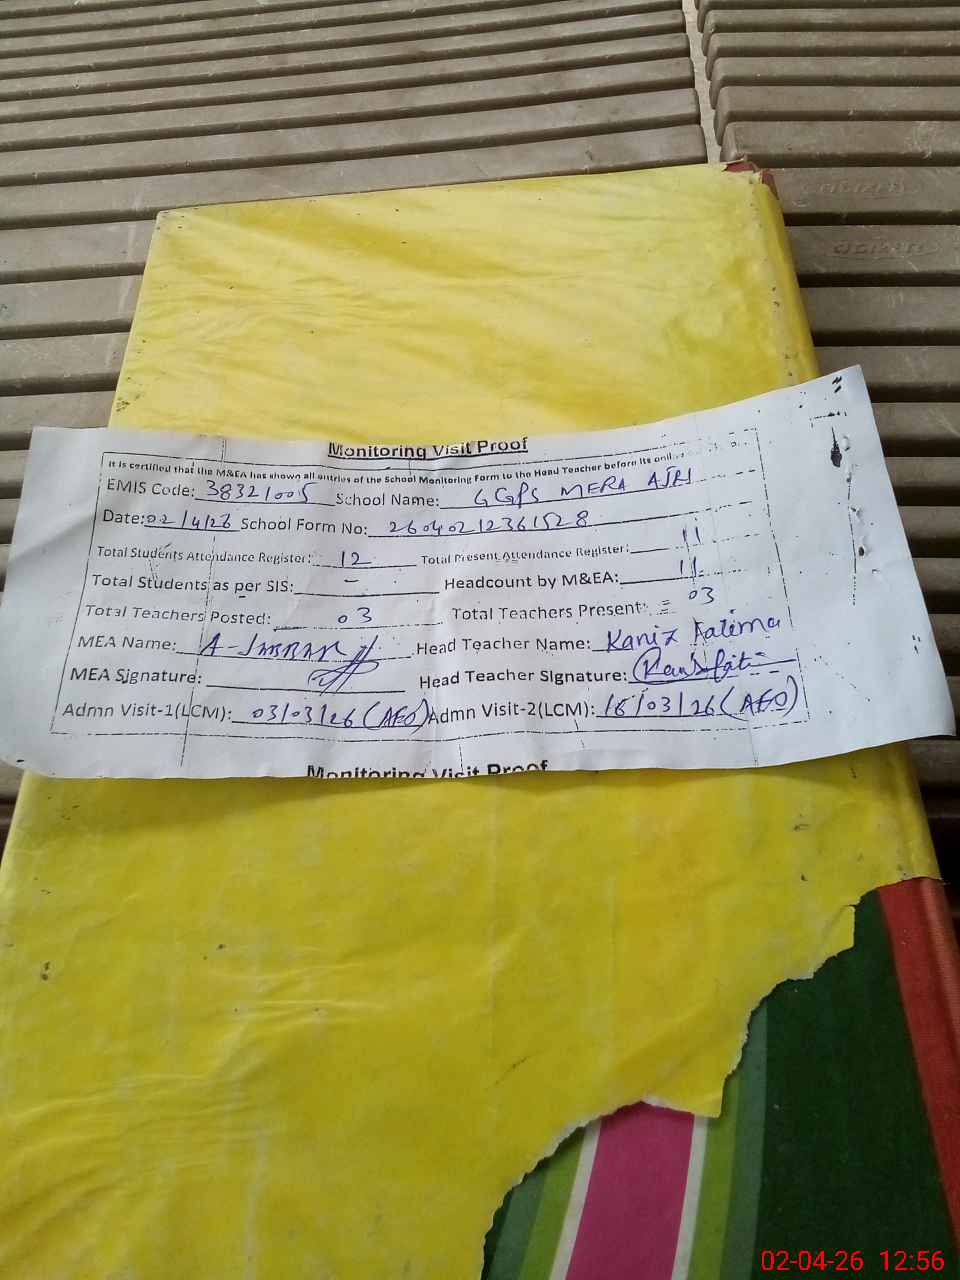 Monitoring Visit Proof
It is certified that the M&EA has shown all entries of the School Monitoring Form to the Head Teacher before its online
EMIS Code: 38321005 School Name: GGPS MERA AJRI
Date: 02/4/26 School Form No: 26040212361528
Total Students Attendance Register: 12 Total Present Attendance Register: 11
Total Students as per SIS: - Headcount by M&EA: 11
Total Teachers Posted: 03 Total Teachers Present: = 03
MEA Name: A-IMRAN Head Teacher Name: Kaniz Fatima
MEA Signature: Head Teacher Signature:
Admn Visit-1(LCM): 03/03/26 (AEO) Admn Visit-2(LCM): 16/03/26 (AEO)
Monitoring Visit Proof
02-04-26 12:56